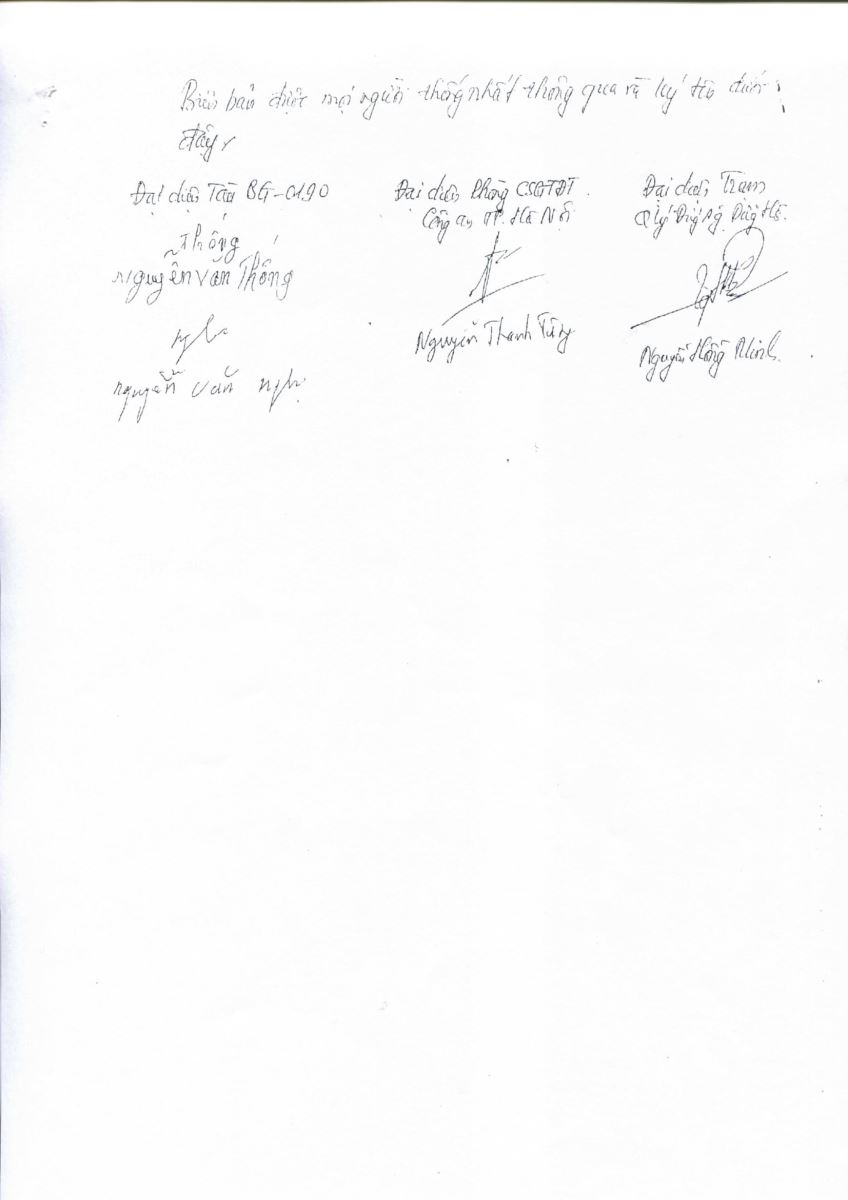 Biên bản được mọi người thống nhất thông qua và ký tên dưới
đây
Đại diện Tàu BG-0190
Đại diện Phòng CSGTĐT
Công an TP. Hà Nội
Đại diện Trạm
Thống
Nguyễn Văn Thống
Nguyễn Thanh Tùng
Nguyễn Hồng Minh
nghị
nguyễn văn nghị